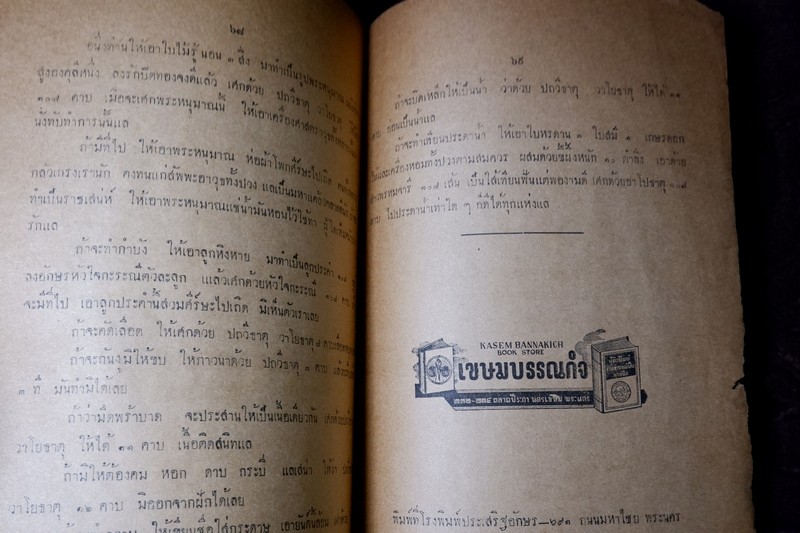 ๖๘
อนึ่งทำนให้เอาใบไม้รู้นอน ๓ สิ่ง มาทำเป็นรูปพระหนุมาณ
สูงองคุลีหนึ่ง ลงรักปิดทองจงดีแล้ว เศกด้วย ปถวีธาตุ วาโยธาตุ
๑๐๘ คาบ เมื่อจะเศกพระหนุมาณนั้น ให้เอาเครื่องศาสตราวุธ
นั่งทับทำการนั้นแล
ถ้ามีที่ไป ให้เอาพระหนุมาณ ห่อผ้าโพกศีร์ษะไปเถิด
กลัวเกรงเรานัก คงทนแก่สัพพะอาวุธทั้งปวง แลเป็นมหาแคล้วคลาดนัก
ทำเป็นราชเสน่ห์ ให้เอาพระหนุมาณแช่น้ำมันหอมไว้ใช้ทา ผู้ใดเห็น
รักแล
ถ้าจะทำกำบัง ให้เอาลูกหิงหาย มาทำเป็นลูกประคำ ๑๐๘
ลงอักษรหัวใจกะระณีตัวละลูก แล้วเศกด้วยหัวใจกะระณี ๑๐๘ คาบ
จะมีที่ไป เอาลูกประคำนี้สวมศีร์ษะไปเถิด มิเห็นตัวเราเลย
ถ้าจะคัดเลือด ให้เศกด้วย ปถวีธาตุ วาโยธาตุ ๘ คาบ
ถ้าจะกันงูมิให้ขบ ให้ภาวนาด้วย ปถวีธาตุ ๘ คาบ แล้ว
๓ ที มันทำมิได้เลย
ถ้าว่ามีดพร้าบาด จะประสานให้เป็นเนื้อเดียวกัน เศกด้วย
วาโยธาตุ ให้ได้ ๓๑ คาบ เนื้อติดสนิทแล
ถ้ามิให้ต้องคม หอก ดาบ กระบี่ แลเสน่า ให้
วาโยธาตุ ๑๒ คาบ มิออกจากฝักได้เลย
ให้เขียนชื่อใส่กระดาษ เอายันต์นี้ล้อม
๖๙
ถ้าจะบีดเหล็กให้เป็นน้ำ ว่าด้วย ปถวีธาตุ วาโยธาตุ ให้ได้ ๑๑
คาบ อ่อนเป็นน้ำแล
ถ้าจะทำเทียนประดาน้ำ ให้เอาใบหรดาน ๓ ใบสมี ๑ เกษรดอก
แลเครื่องหอมทั้งปวงตามสมควร ผสมด้วยขี้ผึ้งหนัก ๑๐ ตำลึง เอาด้าย
พรหมจารี ๑๐๘ เส้น เป็นไส้เทียนฟั่นแต่พองามดี เศกด้วยชาโปธาตุ ๑๐๘
คาบ ไปประดาน้ำเท่าใด ๆ ก็ดีได้ทุกแห่งแล
KASEM BANNAKICH
BOOK STORE
เขษมบรรณกิจ
๒๓๒-๒๓๔ ตลาดปีระกา นครเขษม พระนคร
พิมพ์ที่โรงพิมพ์ประเสริฐอักษร—๖๙๓ ถนนมหาไชย พระนคร